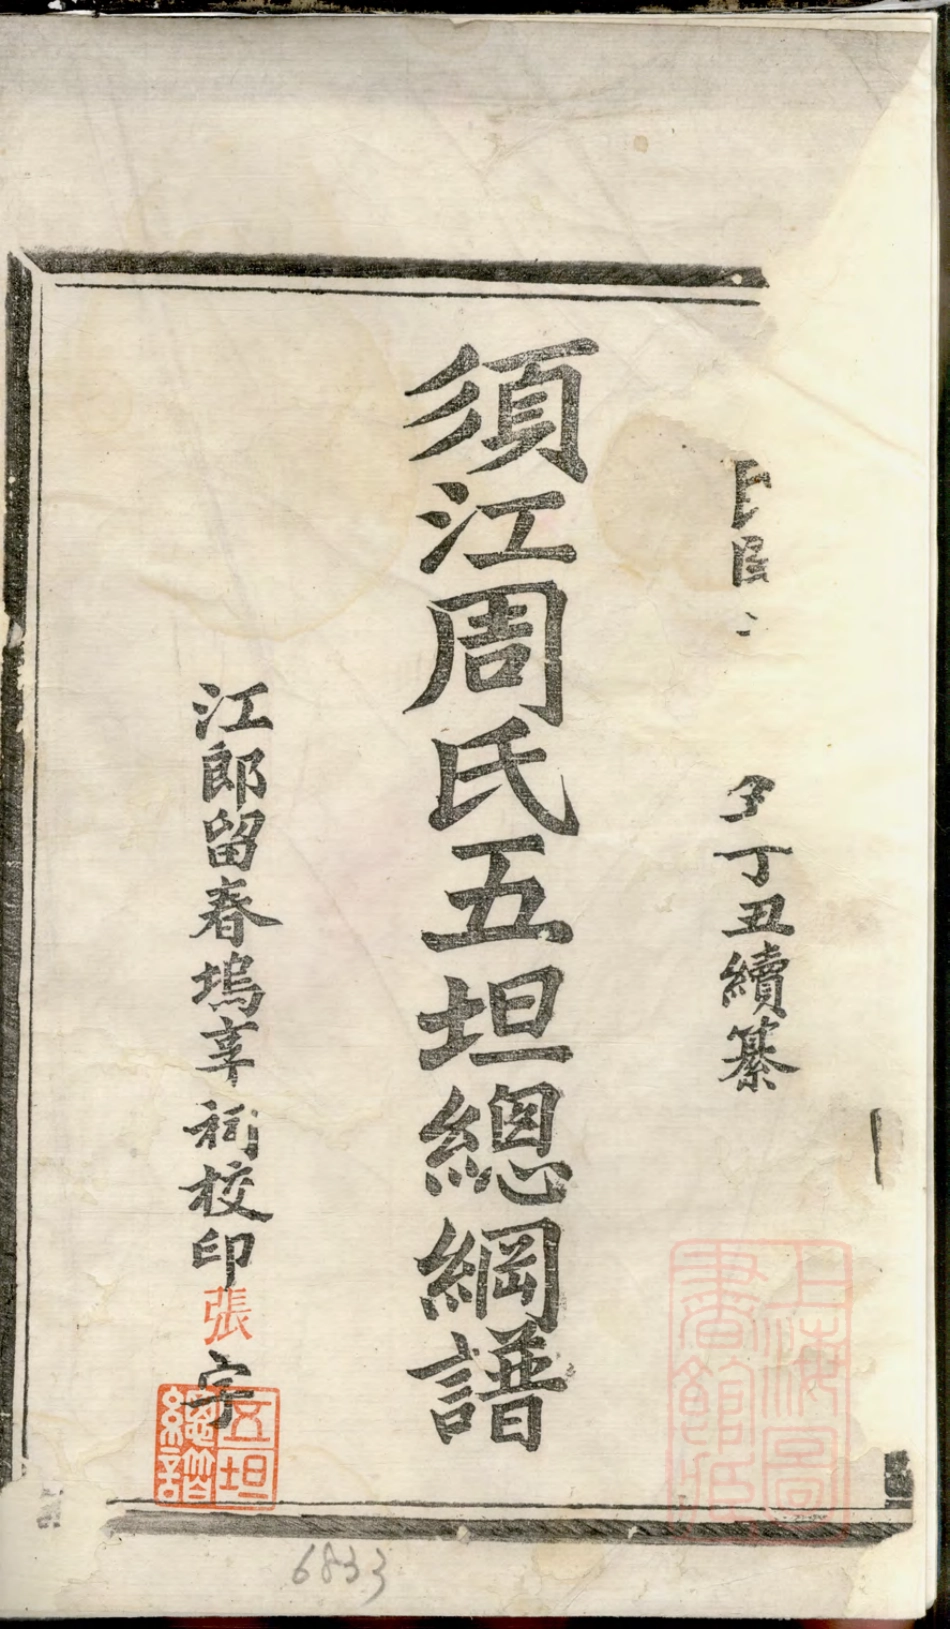 民國
丁丑續纂
須江周氏五坦總綱譜
江郎留春塢享祠校印張字
五坦總譜
上海圖書館藏
6833